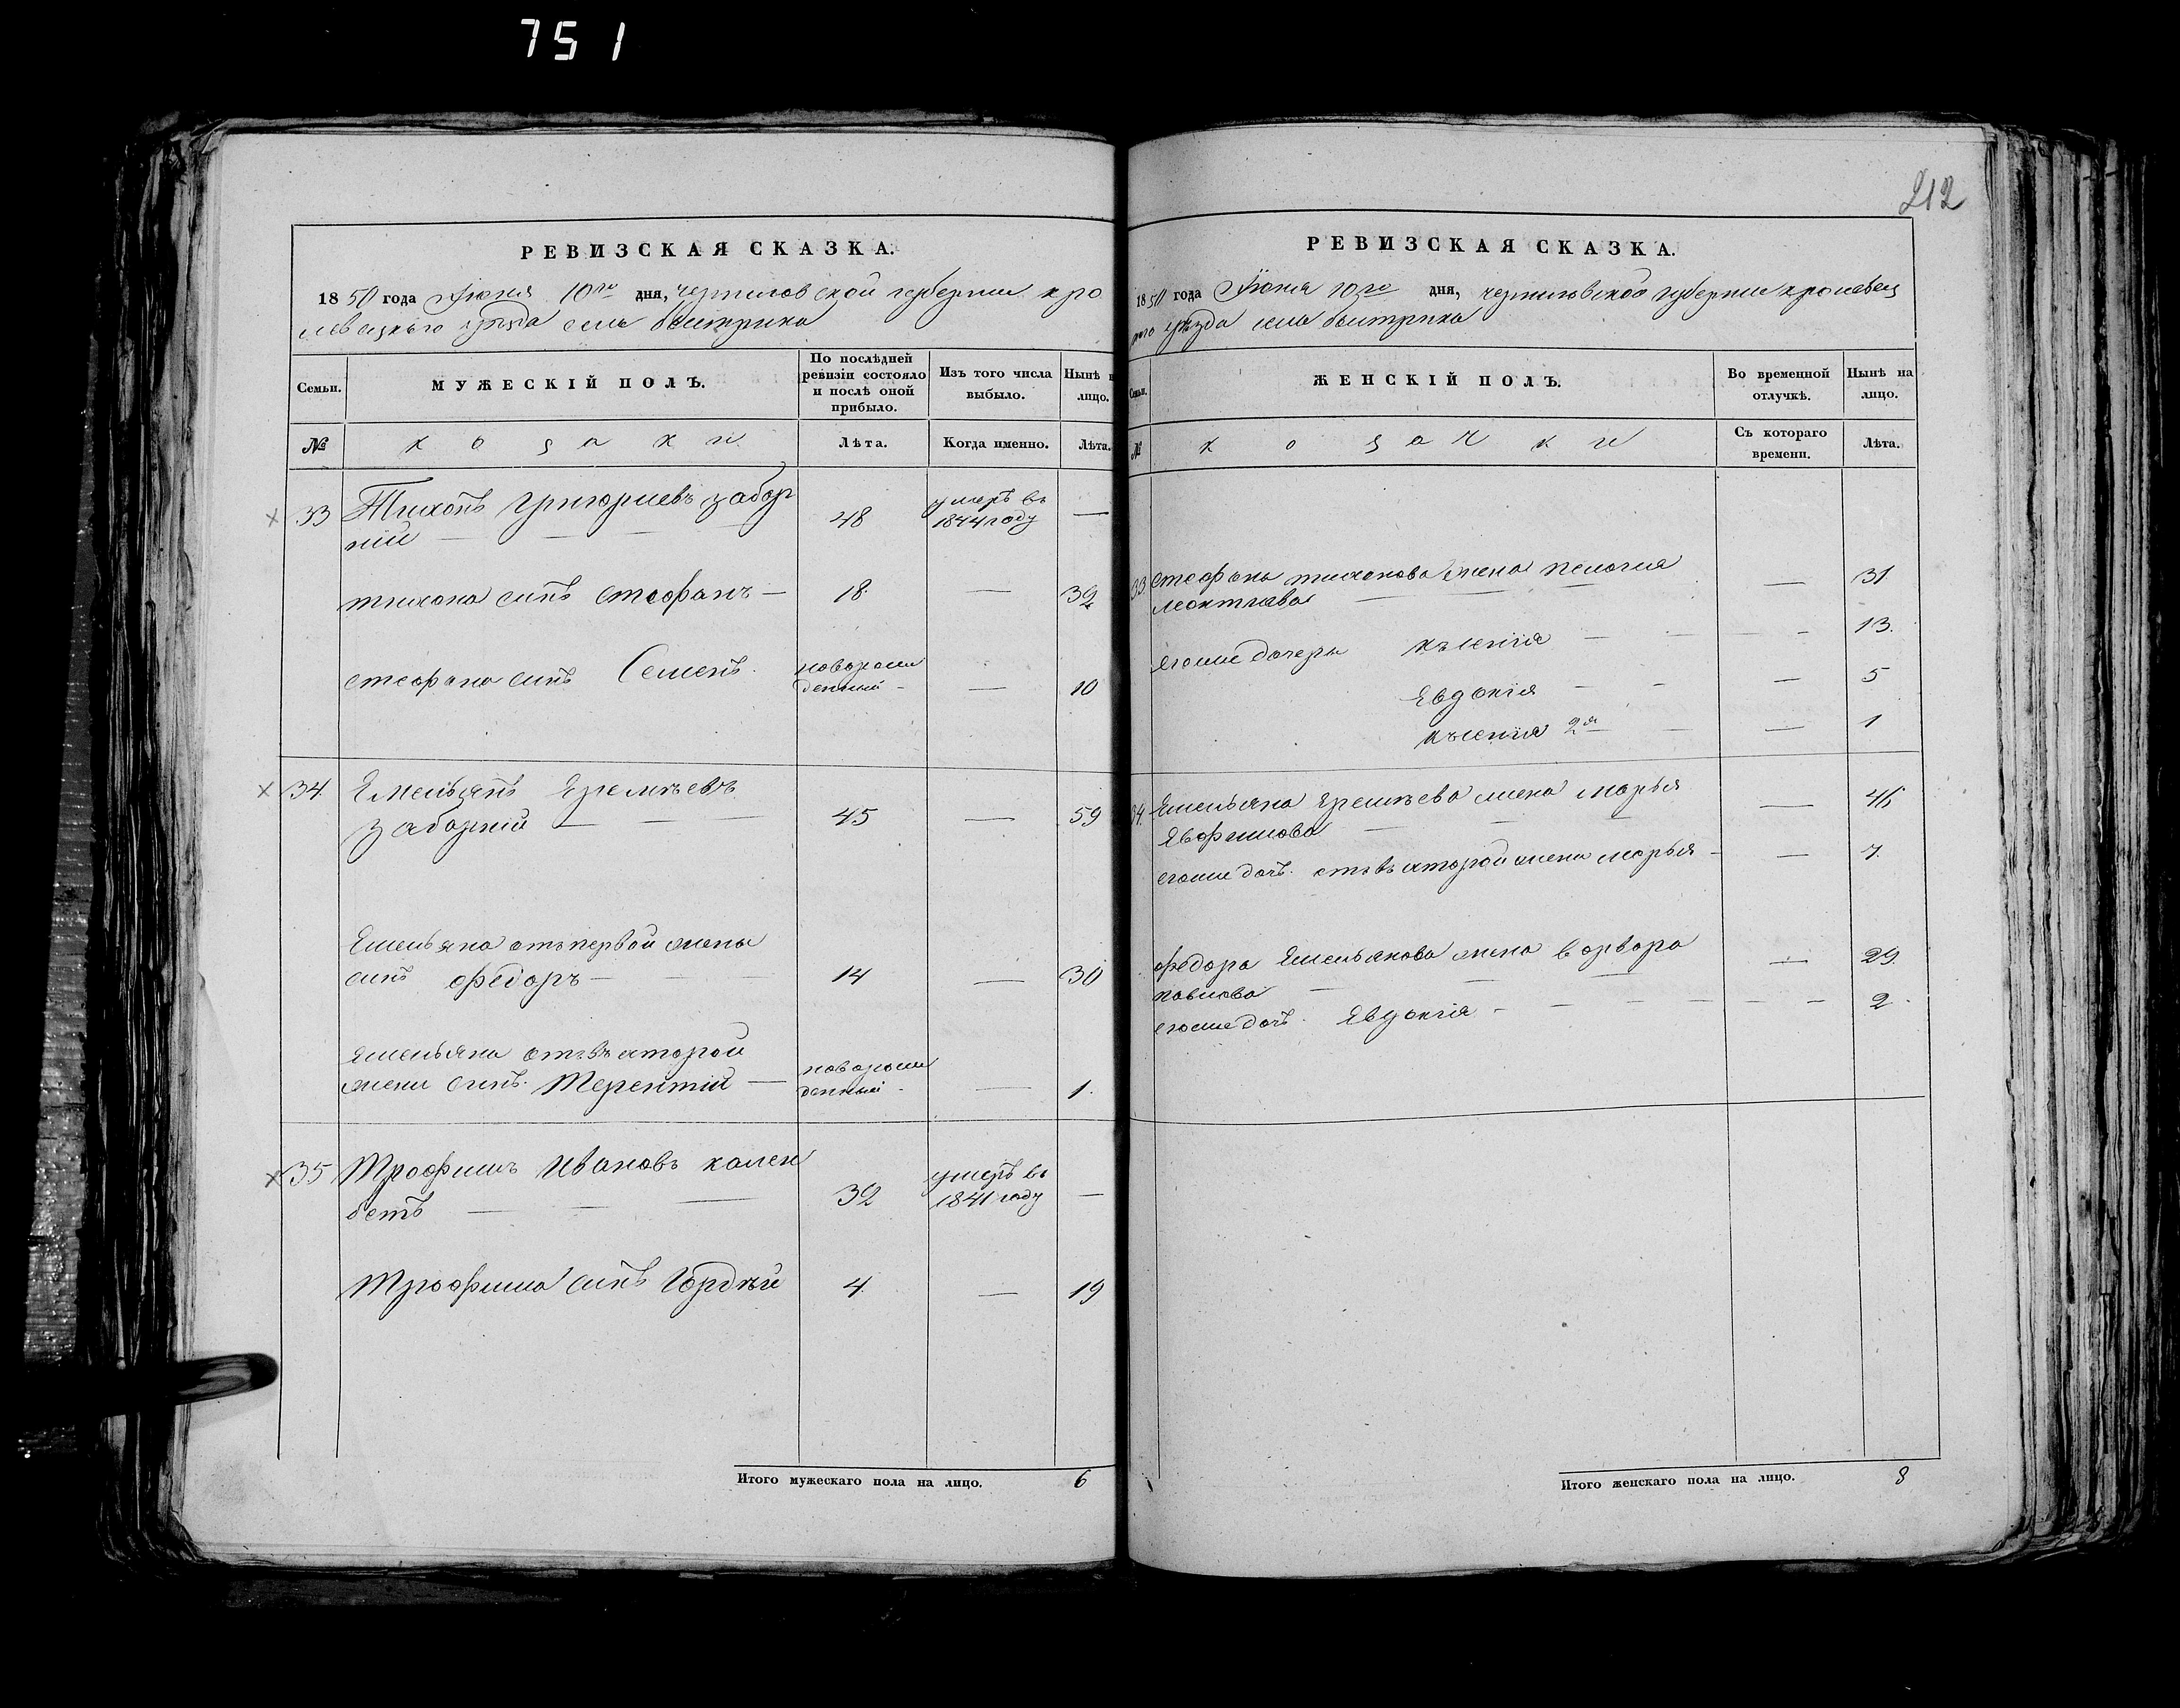 751
212
РЕВИЗСКАЯ СКАЗКА.
1850 года Июня 10го дня, черниговской губернии кро
левецкого уѣзда села быстрика
Семьи.
МУЖЕСКІЙ ПОЛЪ.
По послѣдней ревизіи состояло и послѣ оной прибыло.
Изъ того числа выбыло.
Нынѣ на лицо.
№
козаки
Лѣта.
Когда именно.
Лѣта.
33 Тихонъ Григориевъ забор
ній — — — 48 умеръ въ 1844 году —
тихона синъ стефанъ — 18. — 32
стефана синъ Семенъ. новорож
денный — — 10
34. Емельянъ Яремѣевъ
заборній — — — 45 — 59
Емельяна отъ первой жены
синъ федоръ — 14 — 30
Емельяна отъ второй
жени синъ. Терентій — новорож
денный — — 1.
35 Трофимъ Ивановъ кален
бетъ — — — 32 умеръ въ 1841 году —
Трофима синъ Гордѣй 4. — 19
Итого мужескаго пола на лицо. 6
РЕВИЗСКАЯ СКАЗКА.
1850 года Июня 10го дня, черниговской губернии кролевец
кого уѣзда села быстрика
Семьи.
ЖЕНСКІЙ ПОЛЪ.
Во временной отлучкѣ.
Нынѣ на лицо.
№
козачки
Съ котораго времени.
Лѣта.
33. стефана тихонова жена пелагия — 31
его же дочери — 13.
Евдокія — — — 5
2я — — — 1
34. Емельяна Яремѣева жена марья — 46
его же дочь. отъ второй жени марья — — 7.
федора Емельянова жена варвара — 29.
павлова — — —
его же дочь. Евдокія — — — — 2.
Итого женскаго пола на лицо. 8